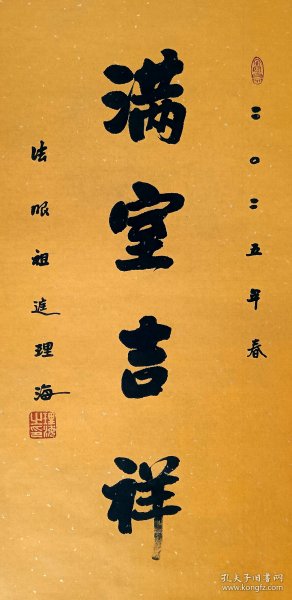 二〇二五年春
满室吉祥
法眼祖庭理海
孔夫子旧书网
www.kongfz.com